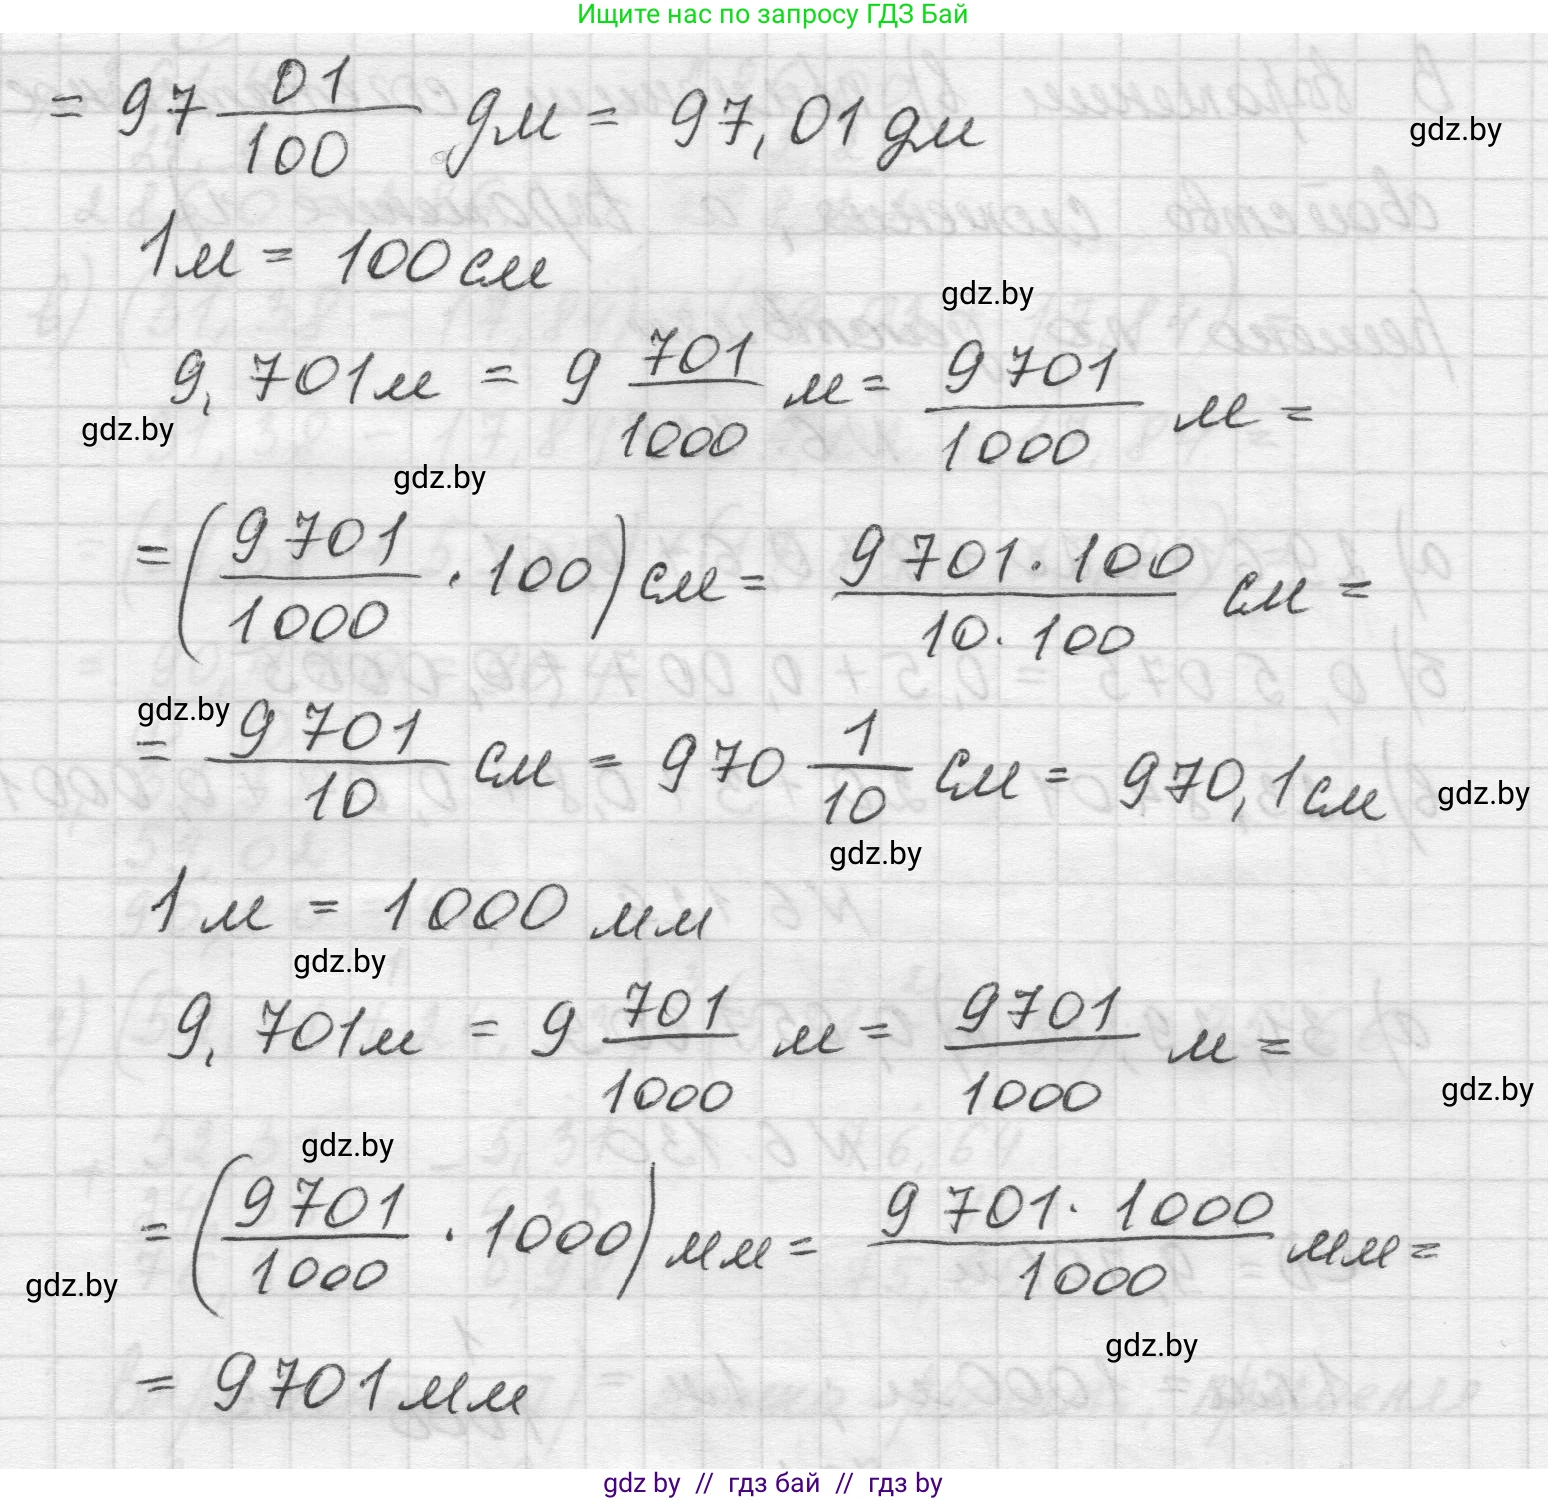 Ищите нас по запросу ГДЗ Бай
= 97 01/100 дм = 97,01 дм
gdz.by
1 м = 100 см
gdz.by
9,701 м = 9 701/1000 м = 9701/1000 м =
gdz.by
gdz.by
= (9701/1000 · 100) см = 9701·100/10·100 см =
gdz.by
= 9701/10 см = 970 1/10 см = 970,1 см
gdz.by
gdz.by
1 м = 1000 мм
gdz.by
9,701 м = 9 701/1000 м = 9701/1000 м =
gdz.by
gdz.by
= (9701/1000 · 1000) мм = 9701·1000/1000 мм =
gdz.by
gdz.by
= 9701 мм
gdz by // гдз бай // гдз by